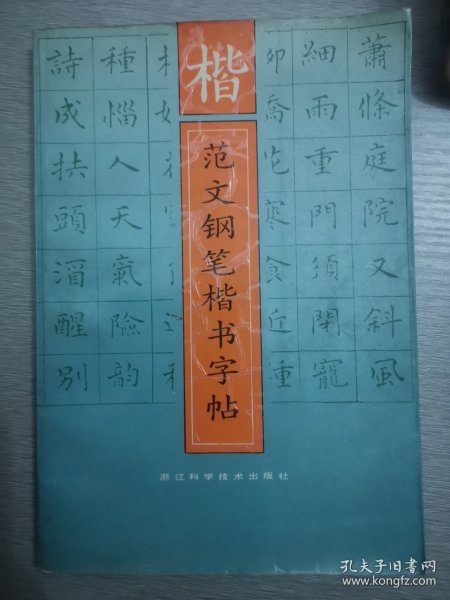 楷
范文钢笔楷书字帖
蕭條庭院又斜風
細雨重門須閉寵
種惱人天氣險韻
詩成扶頭酒醒別
浙江科学技术出版社
孔夫子旧书网
www.kongfz.com